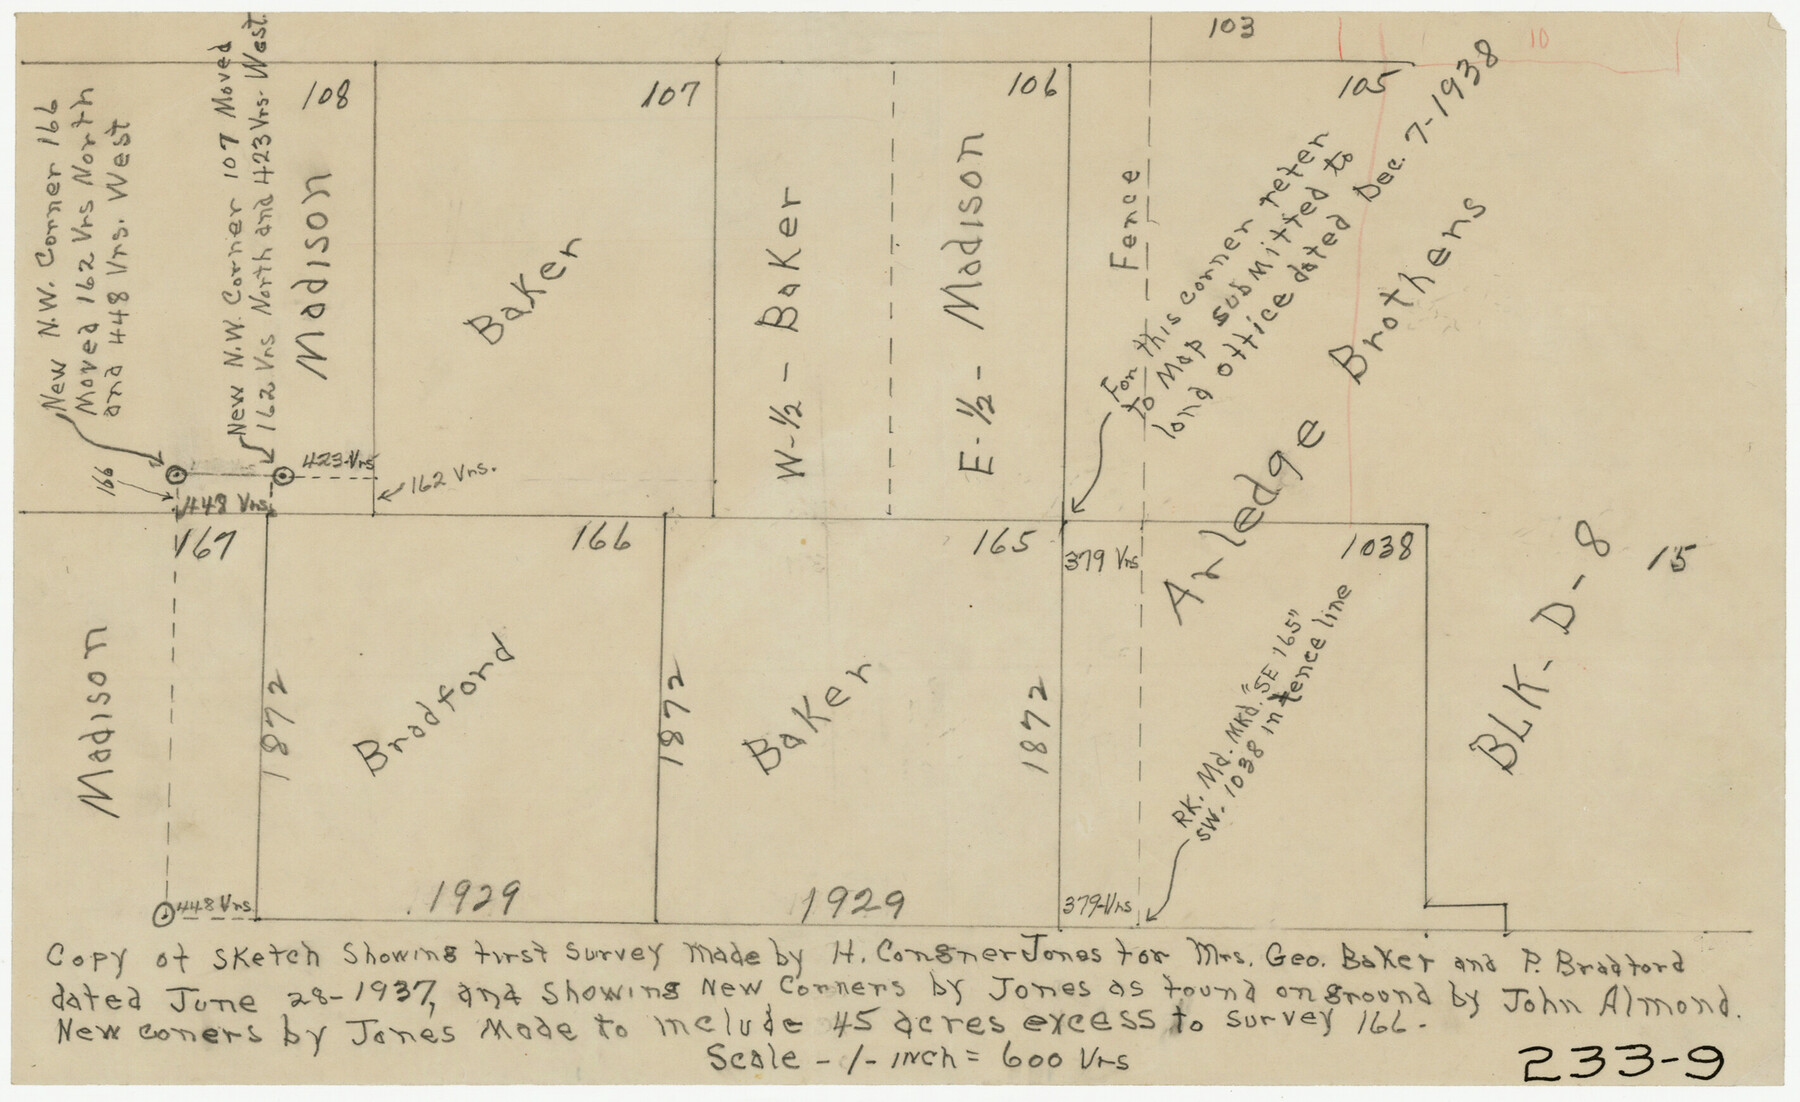 103
10
108
107
106
105
New N.W. Corner 166
Moved 162 Vrs North
and 448 Vrs. West
New N.W. Corner 107 Moved
162 Vrs North and 423 Vrs. West.
Madison
Baker
W-½ - Baker
E-½ - Madison
Fence
For this corner refer
to Map submitted to
land office dated Dec. 7-1938
Arledge Brothers
166
423-Vrs
162 Vrs.
448 Vrs.
167
166
165
379 Vrs
1038
15
BLK-D-8
Madison
1872
Bradford
1872
Baker
1872
RK. Md. MKd. "SE 165"
SW. 1038 in fence line
448 Vrs
1929
1929
379-Vrs
Copy of sketch showing first survey made by H. Jones for Mrs. Geo. Baker and P. Bradford
dated June 28-1937, and showing New Corners by Jones as found on ground by John Almond.
New coners by Jones made to include 45 acres excess to survey 166.
Scale - 1 - inch = 600 Vrs
233-9